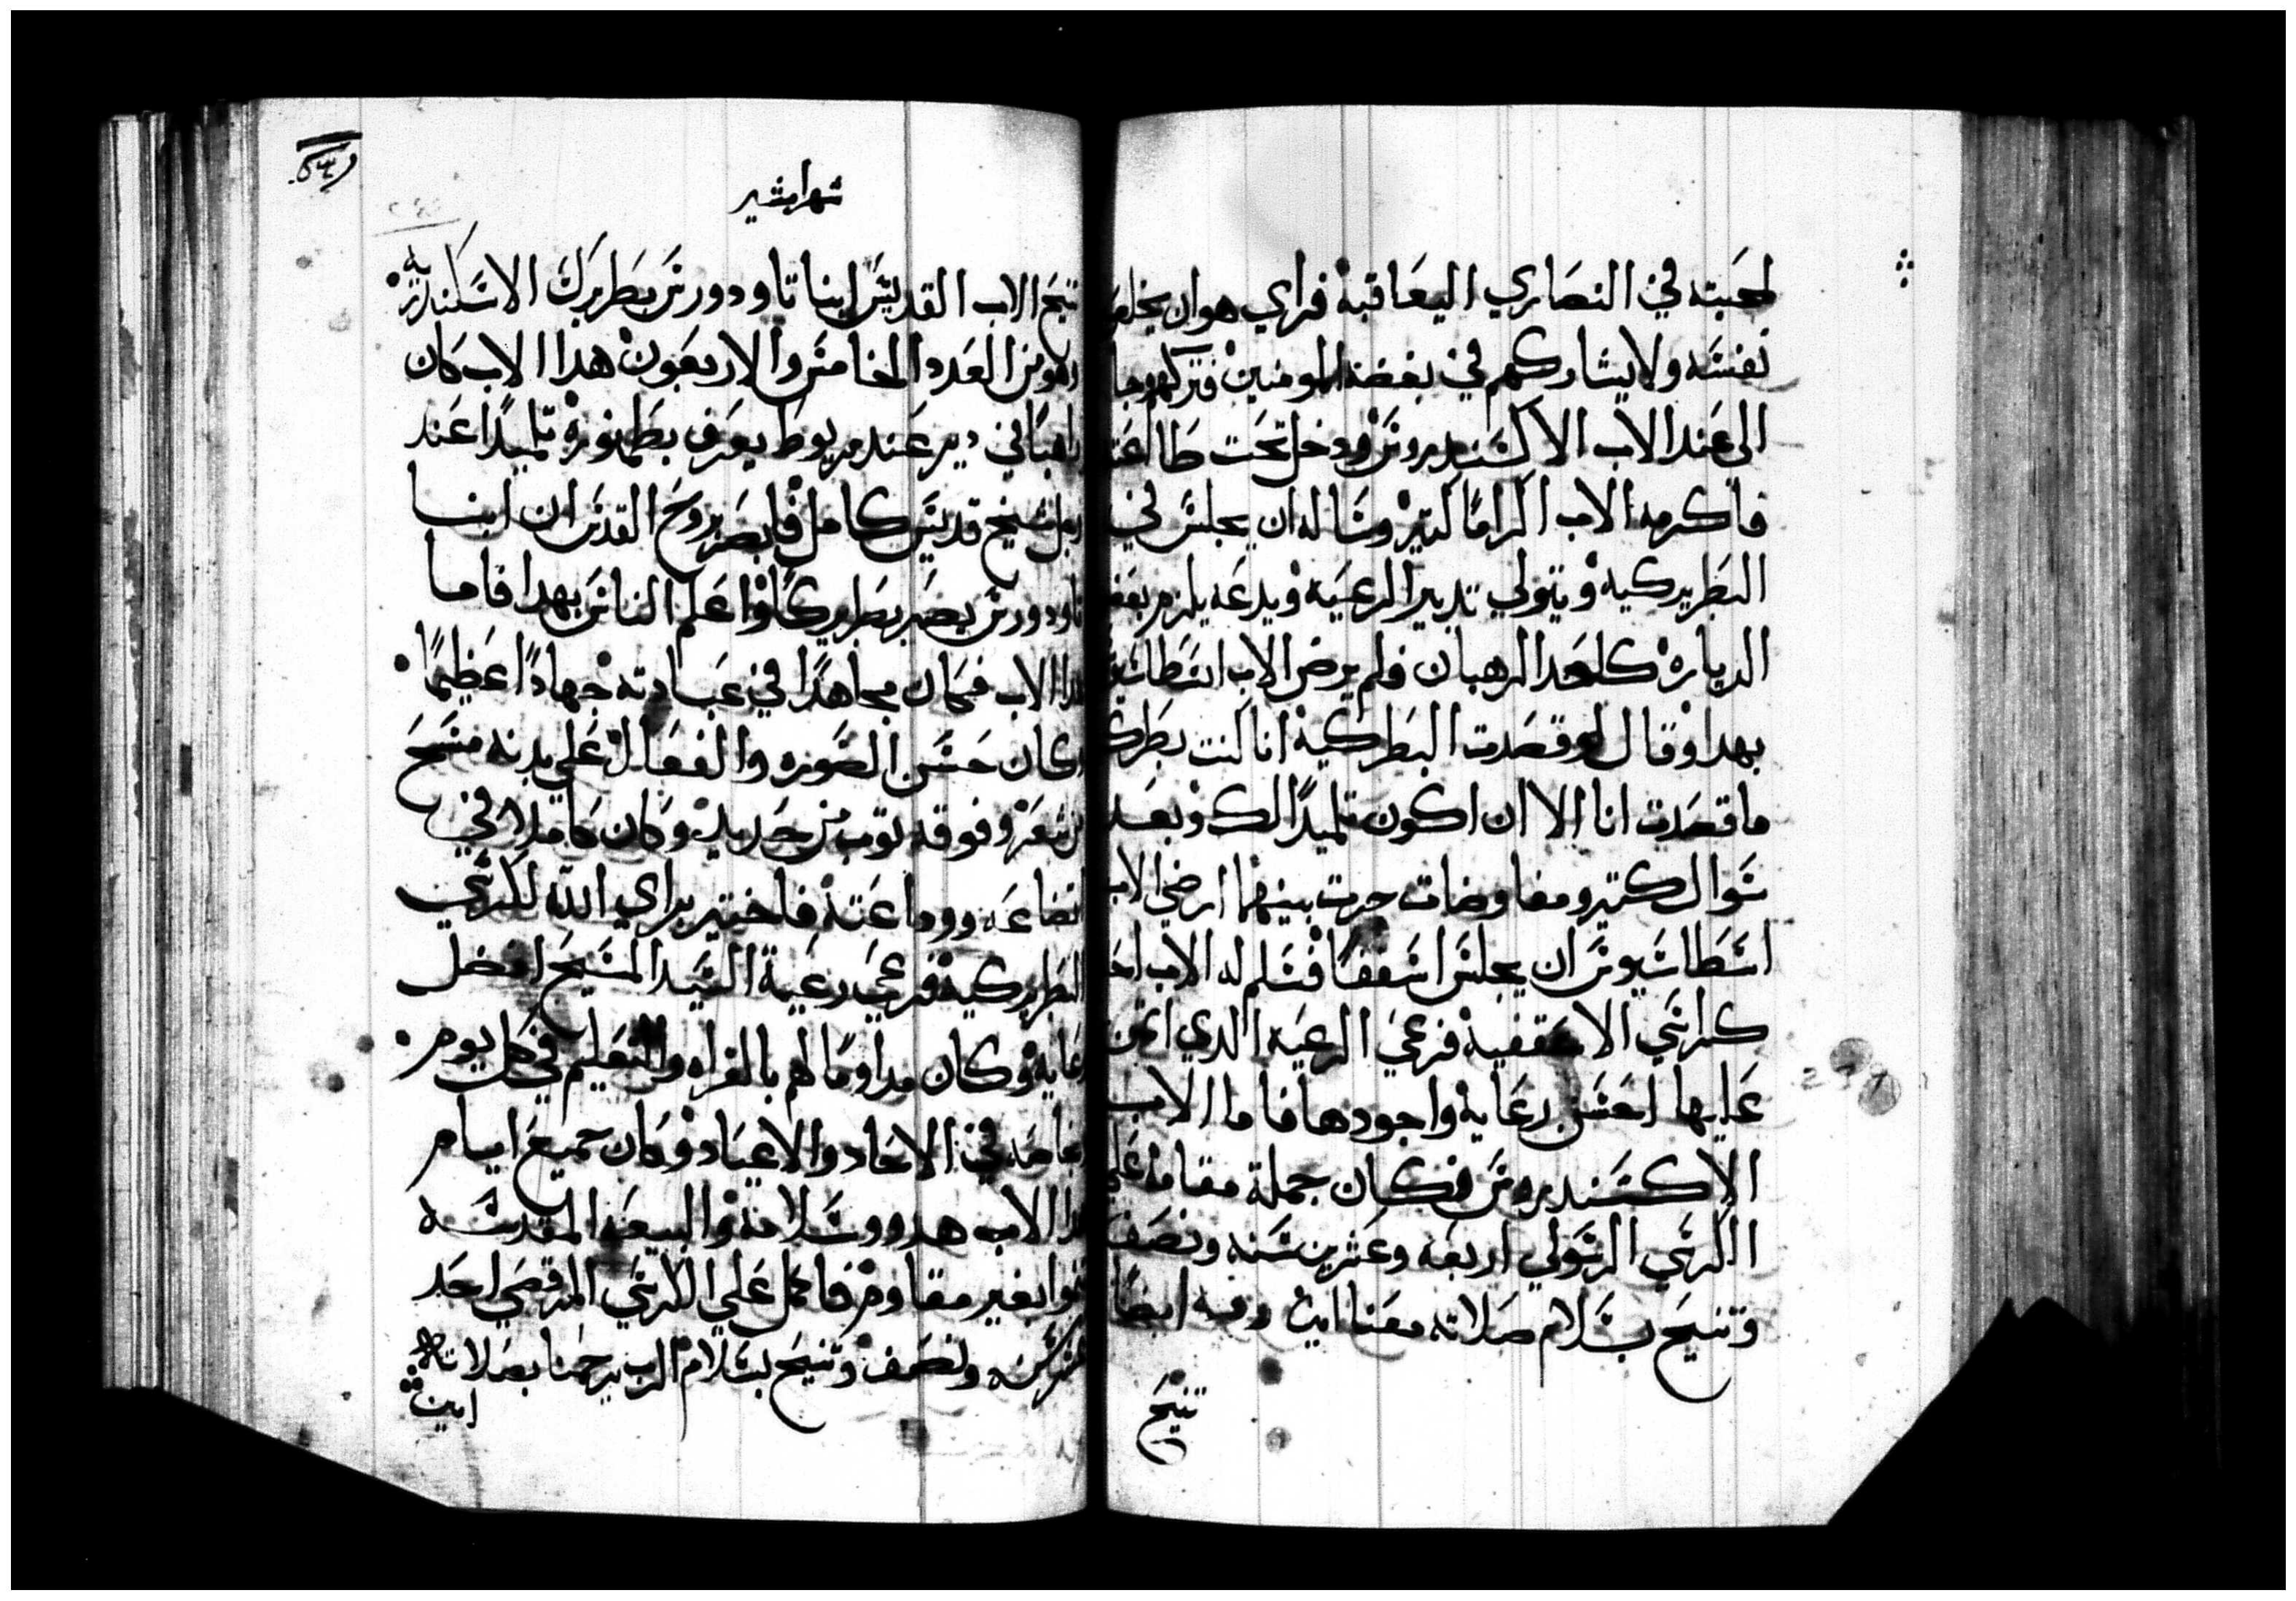 لمحبته في النصاري اليعاقبة فراي هو ان يخلص
نفسه ولا يشاركهم في بغضة المومنين فتركهم وجا
الي عند الاب الاكسندروس ودخل تحت طاا
فاكرمه الاب اكراما كتير وساله ان يجلس في
البطريركيه ويتولي تدبير الرعيه ويدعه يلزم بعض
الدياره كاحد الرهبان فلم يرض الاب اسطاسيو
بهدا وقال لو قصدت البطركية انا كنت بطرك
ما قصدت انا الا ان اكون تلميدا لك وبعد
سوال كتير ومفاوضات جرت بينهما ارضي الاب
اسطاسيوس ان يجلس اسقفا فسلم له الاب احد
كراسي الاسقفية فرعي الرعيه الدي اوتمن
عليها احسن رعاية واجودها فاما الاب
الاكسندروس فكان جملة مقامه علي
الكرسي الرسولي اربعة وعشرين سنه ونصف
وتنيح بسلام صلاته معنا امين وفيه ايضا
تنيح
شهر امشير
تنيح الاب القديس ابنا تاودورس بطريرك الاسكندريه
وهو من العدد الخامس والاربعون هدا الاب كان
راهبا في دير عند مريوط يعرف بطمنوره تلميدا عند
رجل شيخ قديس كامل فابصر بروح القدس ان ابنا
تاودورس يصير بطريركا واعلم الناس بهدا فاما
هدا الاب فكان مجاهدا في عبادته جهادا عظيما
وكان حسن الصوره والفعال علي بدنه مسح
من شعر وفوقه توب من حديد وكان كاملا في
اتضاعه ووداعته فاختير براي الله لكرسي
البطريركية فرعي رعية السيد المسيح افضل
رعاية وكان مداوما لهم بالقراه والتعليم في كل يوم
وخاصه في الاحاد والاعياد وكان جميع ايام
هدا الاب هدوو وسلامه والبيعه المقدسه
تنوا بغير مقاوم فاكمل علي الكرسي المرقصي احد
عشر سنه ونصف وتنيح بسلام الرب يرحمنا بصلاته
امين